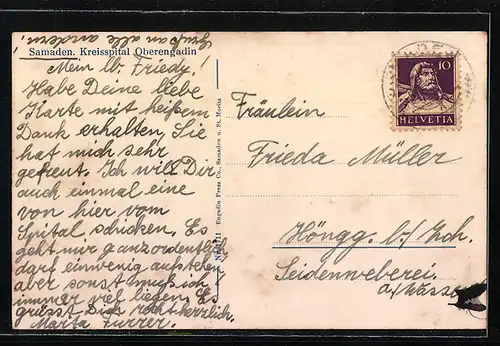 Gruss an alle andern!
Samaden. Kreisspital Oberengadin
Mein lb. Friedy!
Habe Deine liebe
Karte mit heißem
Dank erhalten, Sie
hat mich sehr
gefreut. Ich will Dir
auch einmal eine
von hier vom
Spital schicken. Es
geht mir ganz ordentlich,
darf ein wenig aufstehen
aber sonst muß ich
immer viel liegen. Es
grüsst Dich recht herzlich.
Marta Furrer.
Engadin Press Co., Samaden u. St. Moritz
10
HELVETIA
Fräulein
Frieda Müller
Höngg b/ Zch.
Seidenweberei.
a/Wasser